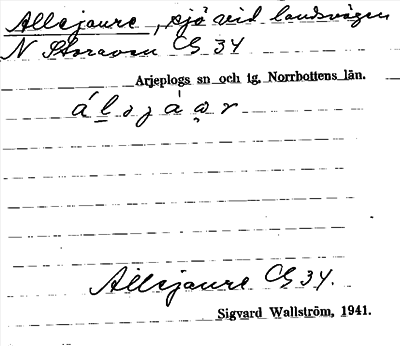 Allejaure, sjö vid landsvägen
N Storavan C8 34
Arjeplogs sn och tg. Norrbottens län.
Allejaure C8 34.
Sigvard Wallström, 1941.